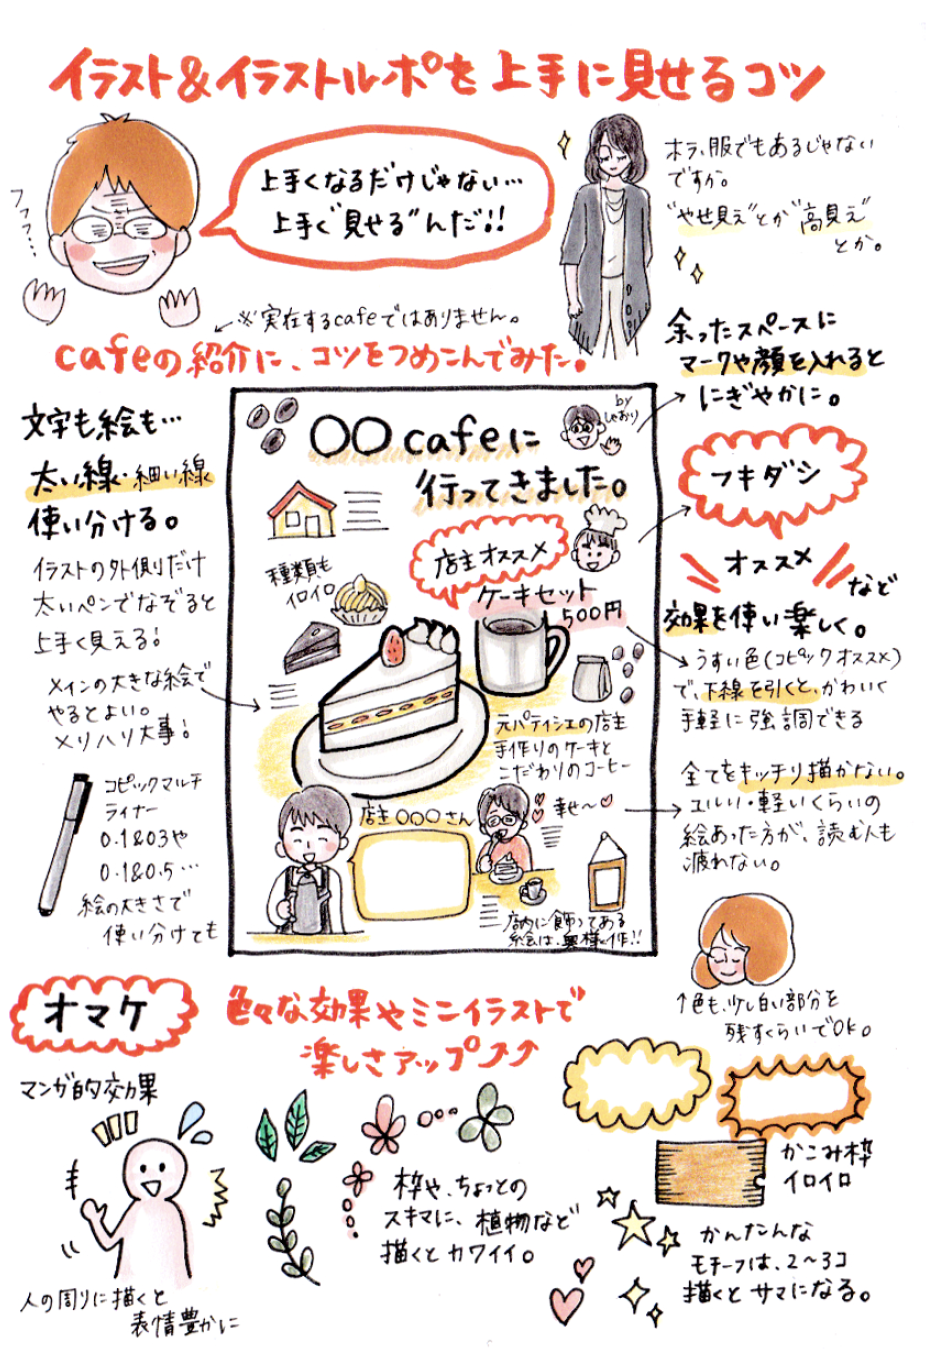 イラスト&イラストルポを上手に見せるコツ
フフフ…
上手くなるだけじゃない…
上手ぐ"見せる"んだ!!
ホラ、服でもあるじゃない
ですか。
"やせ見え"とか"高見え"
とか。
※実在するcafeではありません。
cafeの紹介に、コツをつめこんでみた。
文字も絵も…
太い線・細い線
使い分ける。
イラストの外側だけ
太いペンでなぞると
上手く見える!
メインの大きな絵で
やるとよい。
メリハリ大事!
コピックマルチ
ライナー
0.1&03や
0.1&0.5…
絵の大きさで
使い分けても
〇〇cafeに
行ってきました。
by
しおり
店主オススメ
種類も
イロイロ
ケーキセット
500円
元パティシエの店主
手作りのケーキと
こだわりのコーヒー
店主〇〇〇さん
幸せ〜
店内に飾ってある
絵は、奥様作!!
余ったスペースに
マークや顔を入れると
にぎやかに。
フキダシ
オススメ
など
効果を使い楽しく。
うすい色(コピックオススメ)
で、下線を引くと、かわいく
手軽に強調できる
全てをキッチリ描かない。
ユルい・軽いくらいの
絵あった方が、読む人も
疲れない。
↑色も、少し白い部分を
残すくらいでOK。
オマケ
色々な効果やミニイラストで
楽しさアップ⤴⤴
マンガ的効果
人の周りに描くと
表情豊かに
枠や、ちょっとの
スキマに、植物など
描くとカワイイ。
かこみ枠
イロイロ
かんたんな
モチーフは、2〜3コ
描くとサマになる。